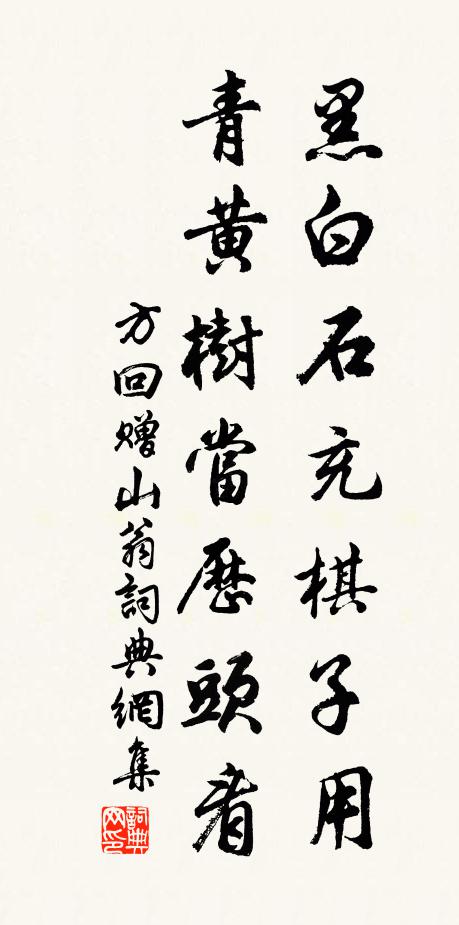 黑白石充棋子用
青黃樹當歷頭看
方回贈山翁詞典網集
詞典网印